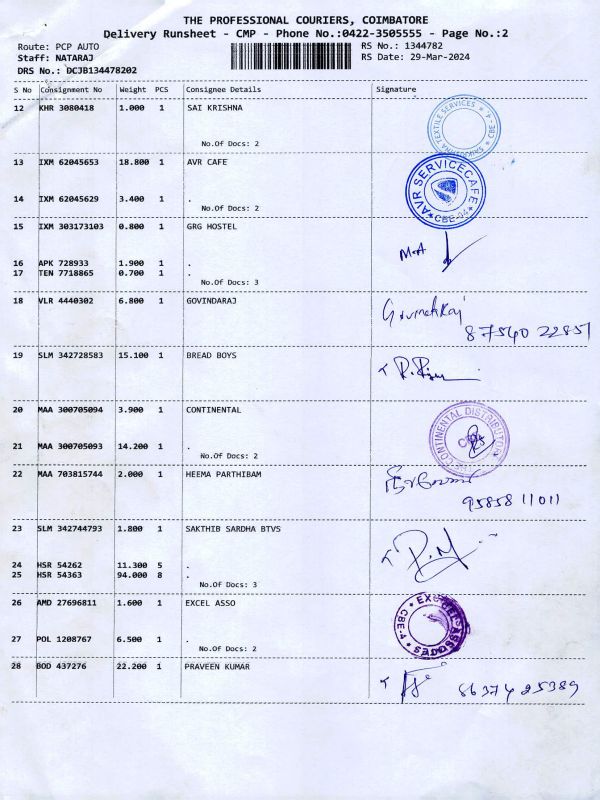 THE PROFESSIONAL COURIERS, COIMBATORE
Delivery Runsheet - CMP - Phone No.:0422-3505555 - Page No.:2
Route: PCP AUTO RS No.: 1344782
Staff: NATARAJ RS Date: 29-Mar-2024
DRS No.: DCJB134478202
S No Consignment No Weight PCS Consignee Details Signature
12 KHR 3080418 1.000 1 SAI KRISHNA
No.Of Docs: 2
13 IXM 62045653 18.800 1 AVR CAFE
AVR SERVICE CAFE
CBE-04
14 IXM 62045629 3.400 1 .
No.Of Docs: 2
15 IXM 303173103 0.800 1 GRG HOSTEL
16 APK 728933 1.900 1 .
17 TEN 7718865 0.700 1 .
No.Of Docs: 3
18 VLR 4440302 6.800 1 GOVINDARAJ
Govindraj
87540 22851
19 SLM 342728583 15.100 1 BREAD BOYS
20 MAA 300705094 3.900 1 CONTINENTAL
21 MAA 300705093 14.200 1 .
No.Of Docs: 2
22 MAA 703815744 2.000 1 HEEMA PARTHIBAM
95858 11011
23 SLM 342744793 1.800 1 SAKTHIB SARDHA BTVS
24 HSR 54262 11.300 5 .
25 HSR 54363 94.000 8 .
No.Of Docs: 3
26 AMD 27696811 1.600 1 EXCEL ASSO
27 POL 1208767 6.500 1 .
No.Of Docs: 2
28 BOD 437276 22.200 1 PRAVEEN KUMAR
86374 25389